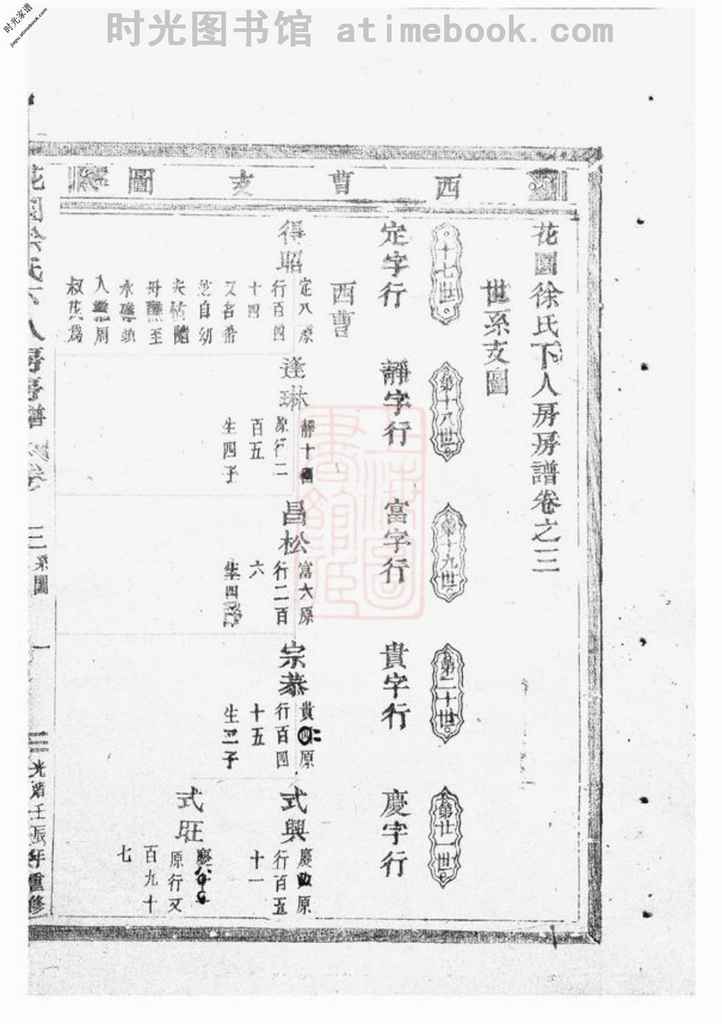 时光图书馆 atimebook.com
时光家谱
jiapu.atimebook.com
西曹支圖
花園徐氏下人房房譜卷之三
世系支圖
十七世
定字行
第十八世
靜字行
第十九世
富字行
第二十世
貴字行
第廿一世
慶字行
西曹
得昭
定八原
行百四
十四
又名希
芝自幼
叔英爲
逢琳
靜十
原行二
百五
生四子
昌松
富六原
行二百
六
生四子
宗恭
貴 原
行百四
十五
生二子
式興
慶 原
行百五
十一
式旺
慶
原行又
百九十
七
花園徐氏下人房房譜 卷三
系圖
一
光緒壬辰年重修